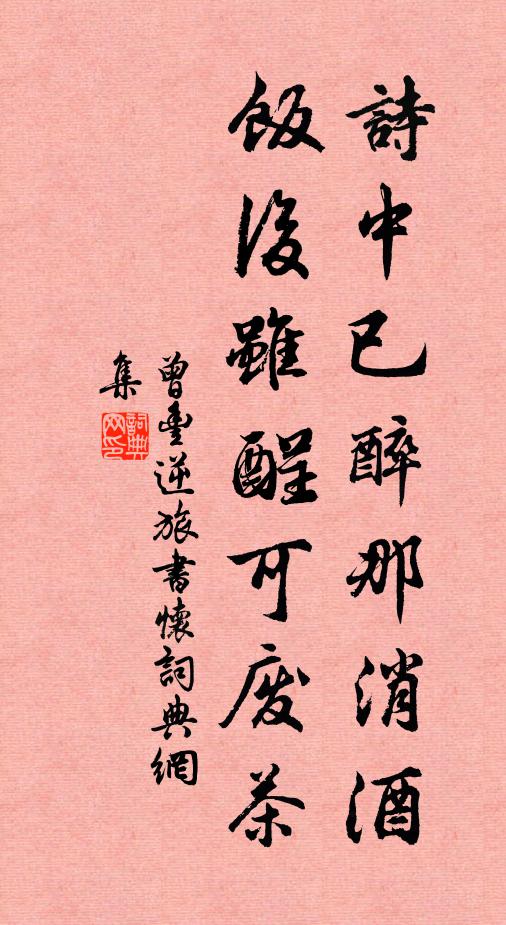 詩中已醉那消酒
飯後雖醒可廢茶
曾豐逆旅書懷詞典網
集
詞典網印